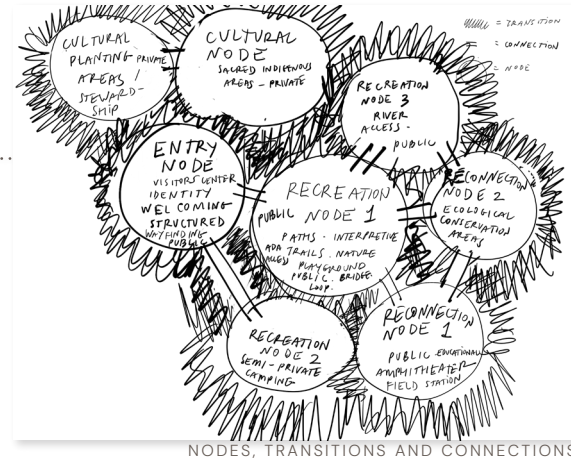 CULTURAL
PLANTING PRIVATE
AREAS /
STEWARD-
SHIP
CULTURAL
NODE
SACRED INDIGENOUS
AREAS - PRIVATE
= TRANSITION
= CONNECTION
= NODE
RECREATION
NODE 3
RIVER
ACCESS -
PUBLIC
ENTRY
NODE
VISITORS CENTER
IDENTITY
WELCOMING
STRUCTURED
WAYFINDING
PUBLIC
RECREATION
PUBLIC NODE 1
PATHS - INTERPRETIVE
ADA TRAILS. NATURE
ACCESS PLAYGROUND
PUBLIC. BRIDGE.
LOOP.
RECONNECTION
NODE 2
ECOLOGICAL
CONSERVATION
AREAS
RECREATION
NODE 2
SEMI-PRIVATE
CAMPING
RECONNECTION
NODE 1
PUBLIC EDUCATIONAL
AMPHITHEATER
FIELD STATION
NODES, TRANSITIONS AND CONNECTIONS